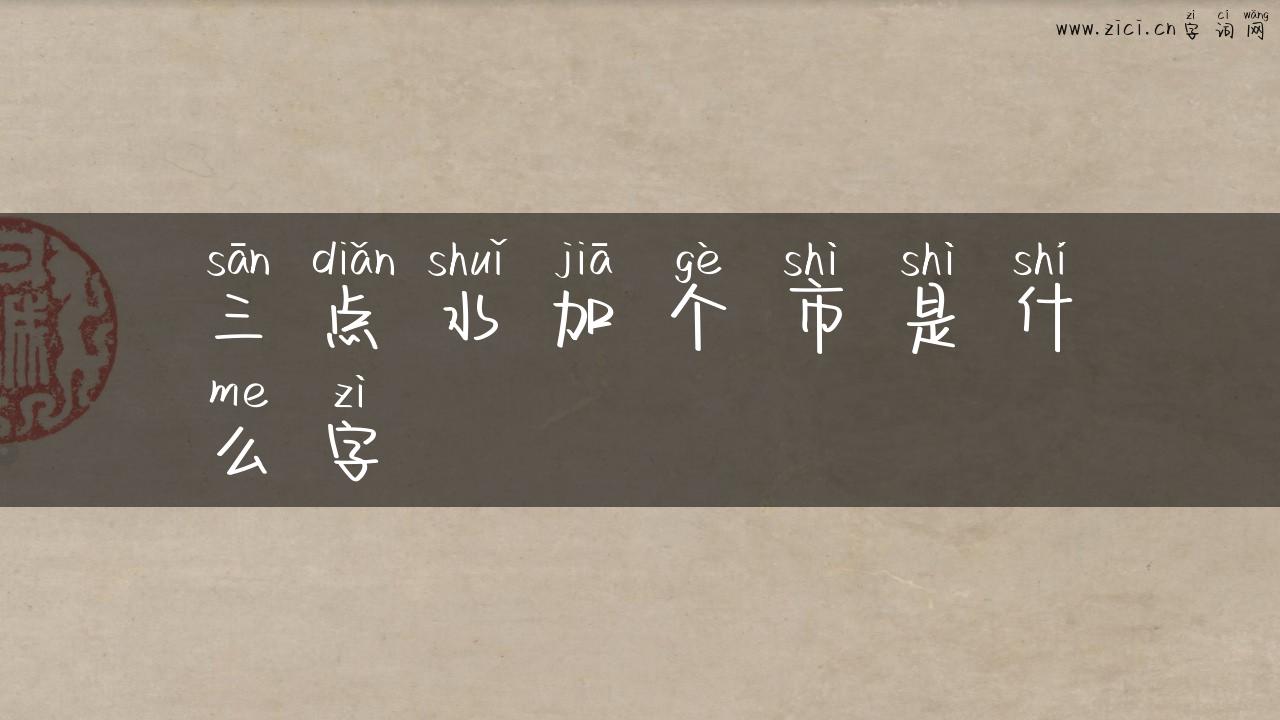 zì cí wǎng
www.zici.cn 字词网
sān diǎn shuǐ jiā gè shì shì shí
三点水加个市是什
me zì
么字